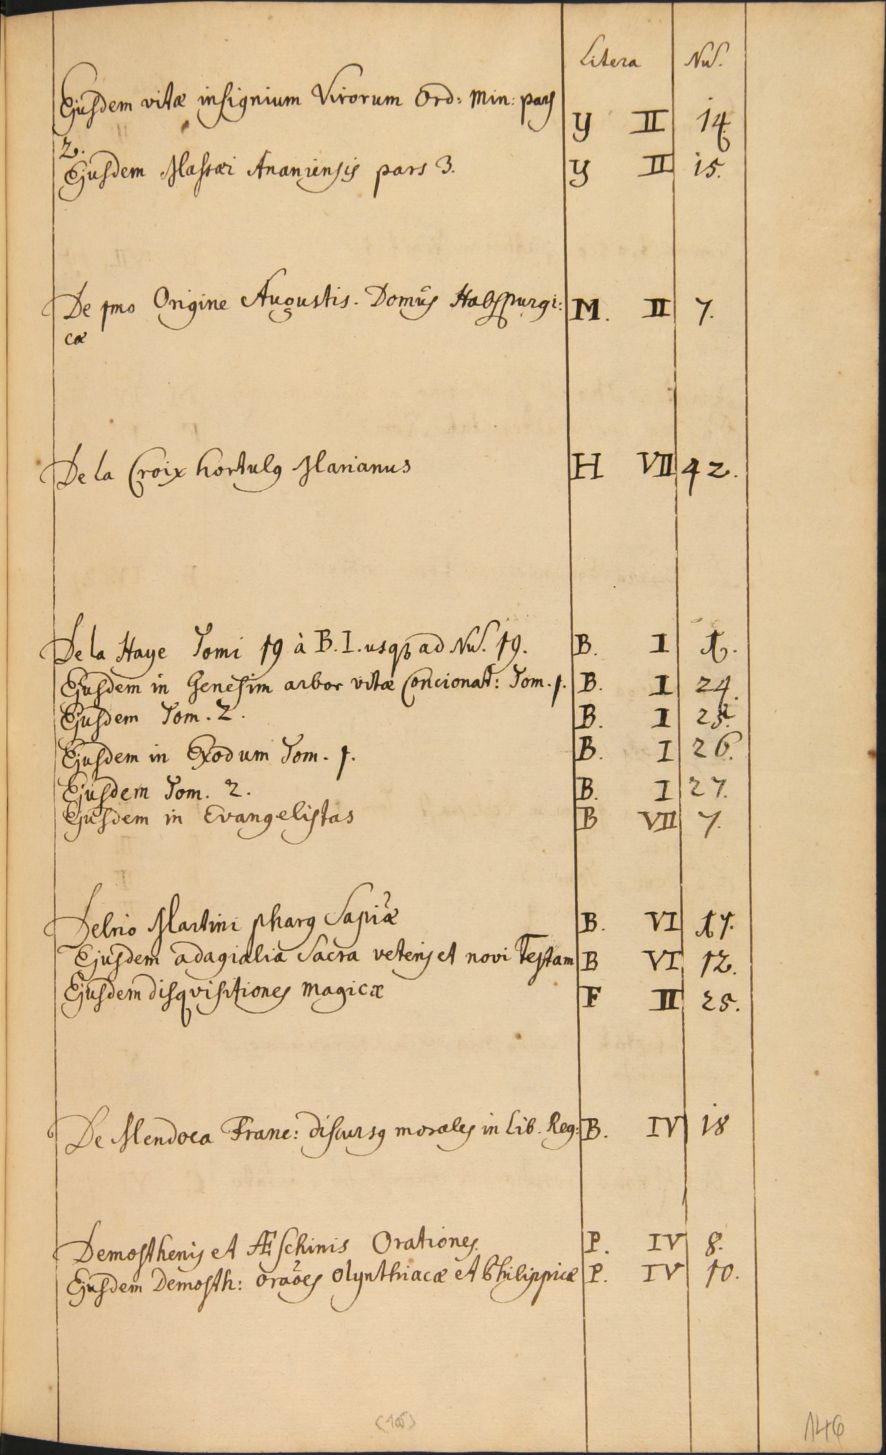 Litera Nus.
Ejusdem vitæ insignium Virorum Ord: Min: pars Y II 14
2.
Ejusdem Massæi Ananiensis pars 3. Y II 15.
De Origine Augustis. Domûs Habspurgi: M. II 7.
cæ
De la Croix hortulꝰ Marianus H VII 42.
De la Haye Tomi 19 à B. I. usqꝫ ad Nus. 19. B. I 1.
Ejusdem in Genesim arbor vitæ Concionat: Tom. 1. B. I 24.
Ejusdem Tom. 2. B. I 25.
Ejusdem in Exodum Tom. 1. B. I 26.
Ejusdem Tom. 2. B. I 27.
Ejusdem in Evangelistas B VII 7.
Delrio Martini pharꝰ Sapiæ B. VI 11.
Ejusdem adagialia Sacra veteris et novi Testam B VI 12.
Ejusdem disqvisitiones Magicæ F II 25.
De Mendoca Franc: discursꝰ morales in Lib. Reg: B. IV 18
Demosthenis et Æschinis Orationes P. IV 8.
Ejusdem Demosth: oraões Olynthiacæ et Philippicæ P. IV 10.
146